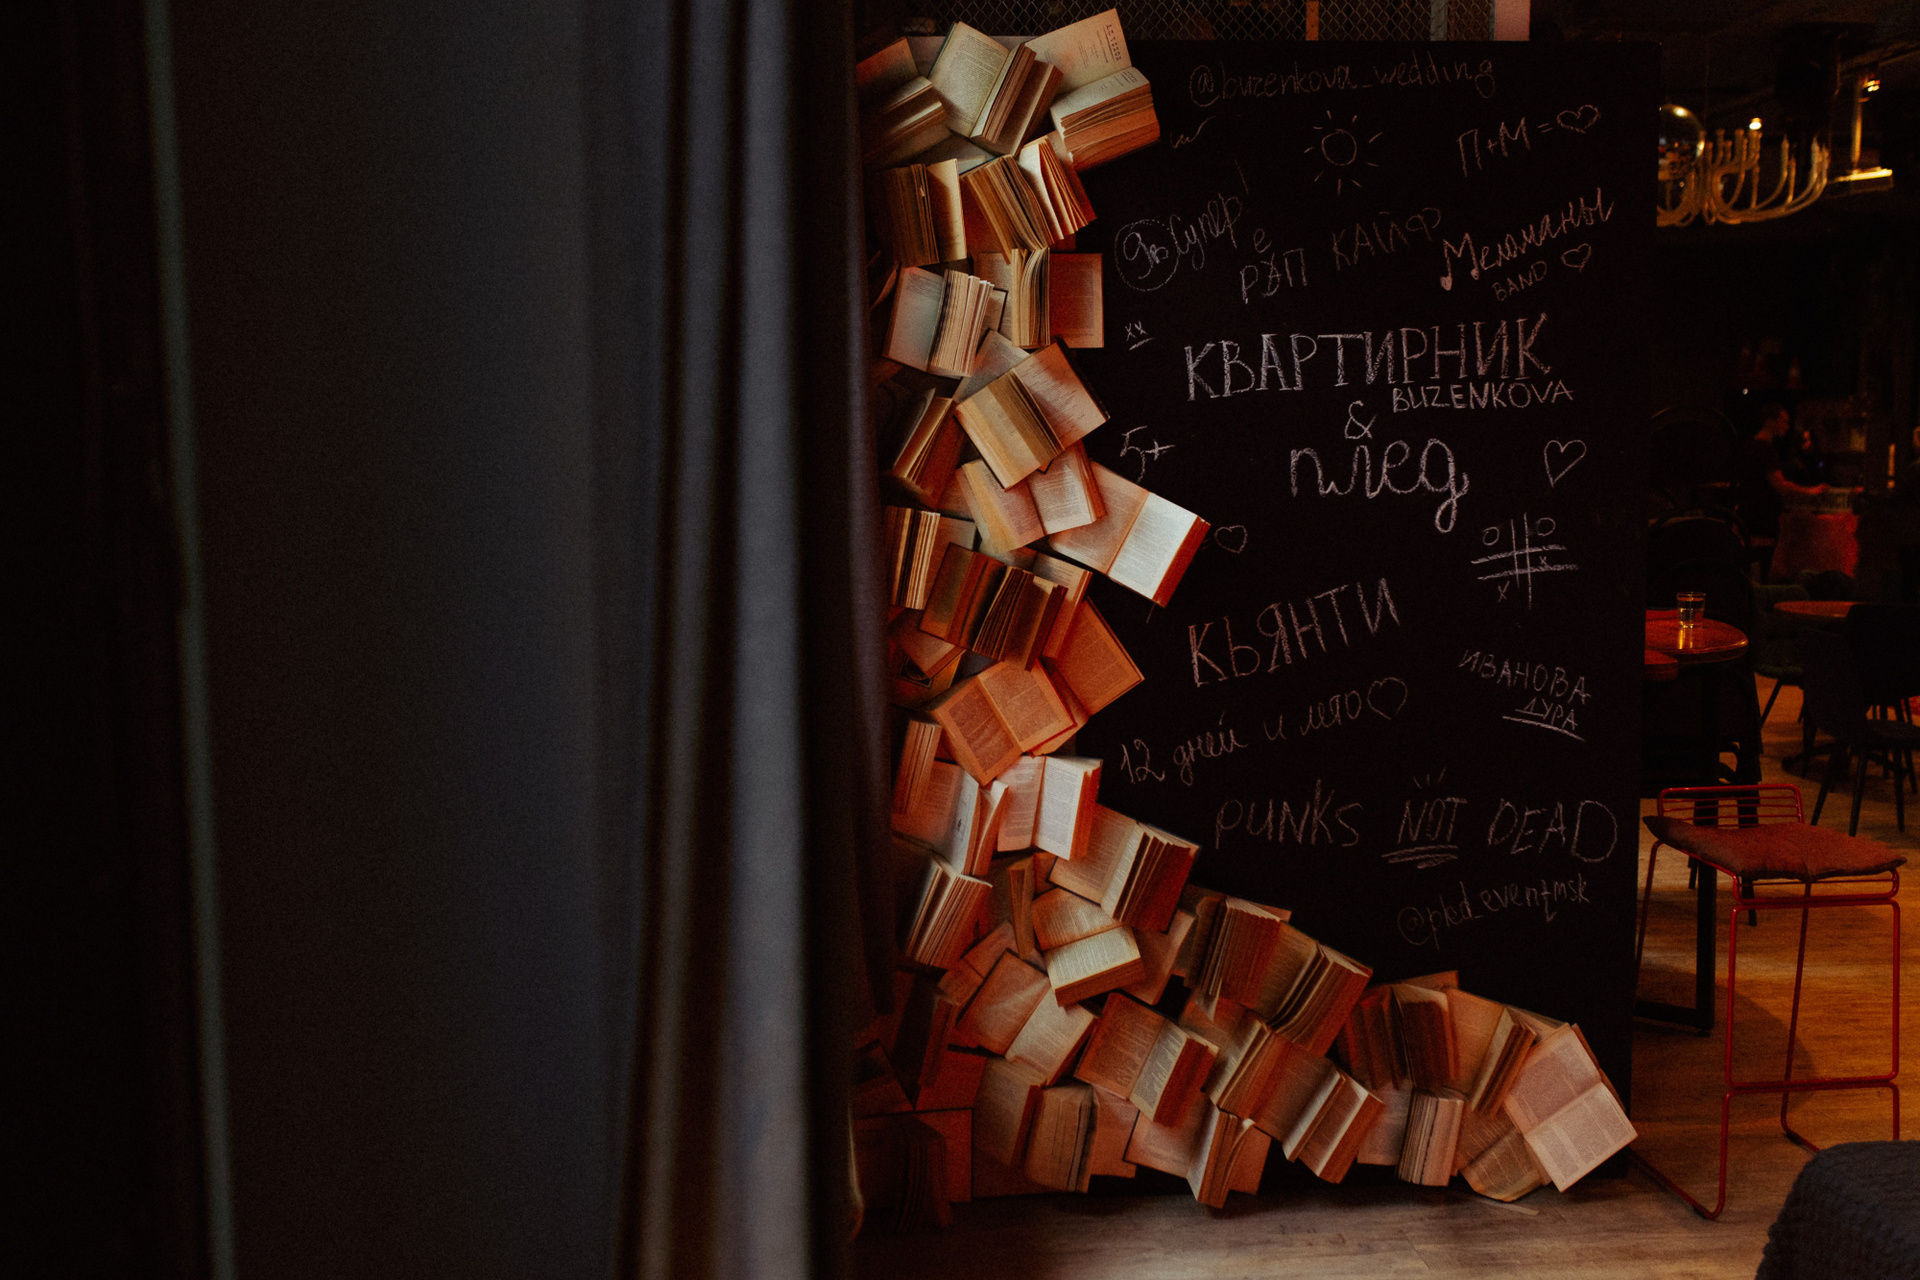 @buzenkova_wedding
П+М=♡
Супер
е
РЭП КАЙФ
Меломаны
BAND ♡
хх
КВАРТИРНИК
BUZENKOVA
&
плед
5+
КЬЯНТИ
ИВАНОВА
ДУРА
12 дней и лето♡
PUNKS NOT DEAD
@pled_eventmsk